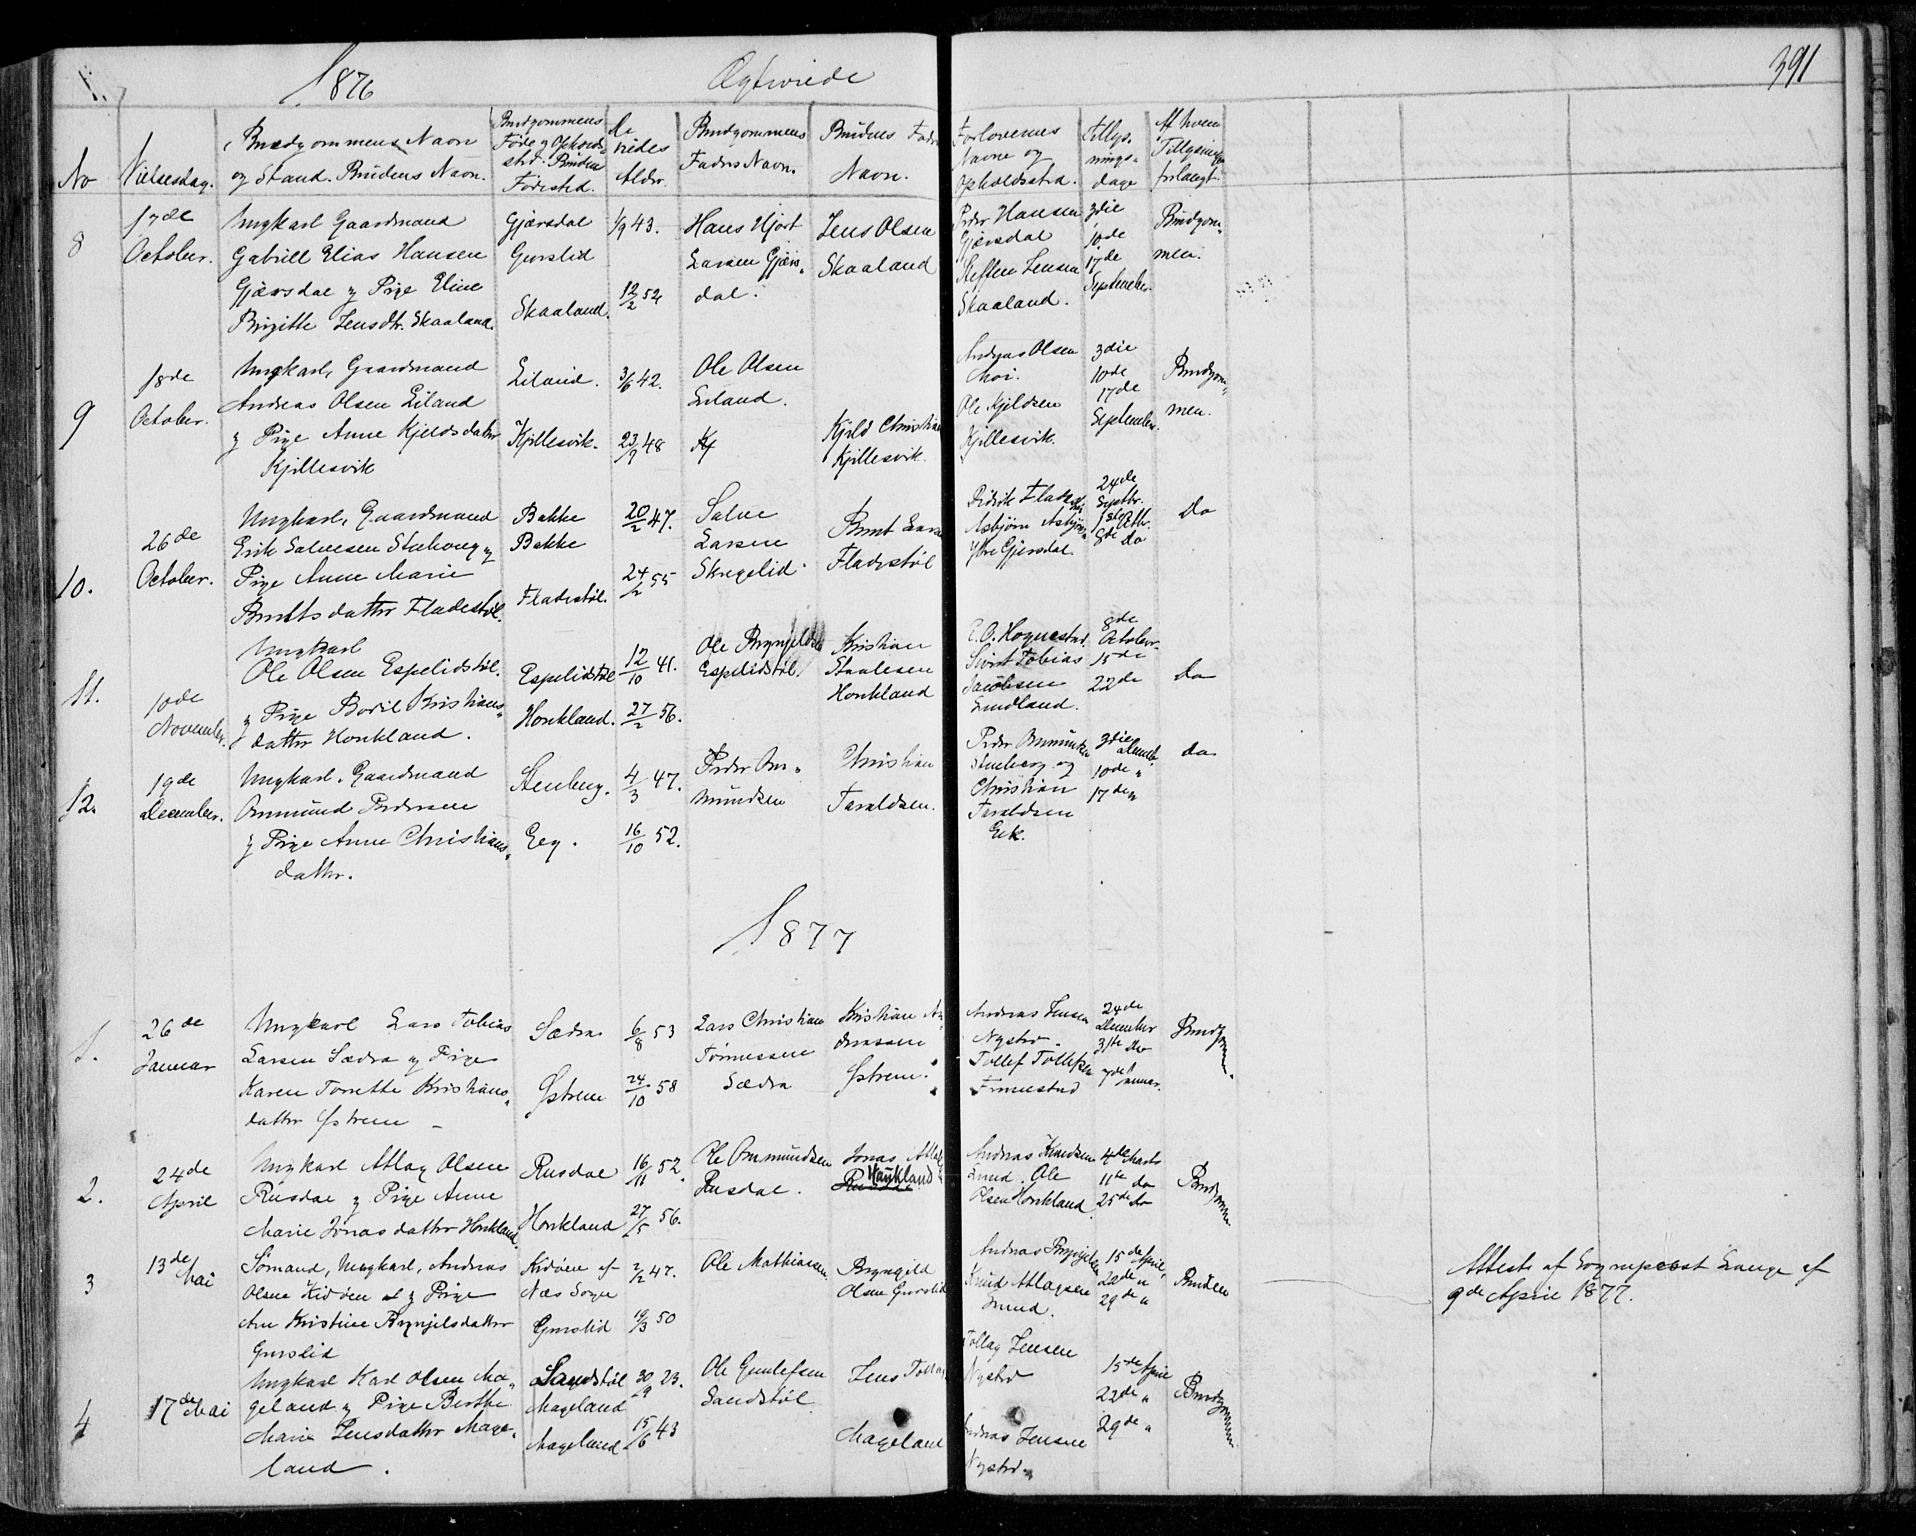 1876 Ægteviede 391
No
Vielsesdag.
Brudgommens Navn
og Stand. Brudens Navn.
Brudgommens
Føde og Opholds
sted. Brudens
Fødested.
De
viedes
Alder.
Brudgommens
Faders Navn.
Brudens Fader
Navn.
Forlovernes
Navne og
Opholdssted.
Tillys-
nings-
dage
Af hvem
Tillysningen
forlangt.
8
17de
October.
Ungkarl Gaardmand
Gabriell Elias Hansen
Gjersdal og Pige Eline
Birgitte Jensdtr. Skaaland.
Gjersdal
Gurslid
Skaaland.
1/9 43.
12/2 52
Hans Hjort
Larsen Gjers-
dal.
Jens Olsen
Skaaland
Peder Hansen
Gjersdal
Steffen Jensen
Skaaland.
3die
10de
17de
September.
Brudgom-
men.
9
18de
October.
Ungkarl, Gaardmand
Andreas Olsen Eiland
og Pige Anne Kjeldsdatter
Kjellesvik
Eiland.
Kjellesvik.
3/6 42.
23/9 48
Ole Olsen
Eiland.
Kj
Kjeld Christian
Kjellesvik.
Andreas Olsen
Moi.
Ole Kjeldsen
Kjellesvik.
3die
10de
17de
September.
Brudgom-
men.
10.
26de
October.
Ungkarl, Gaardmand
Erik Salvesen Stenberg og
Pige Anne Marie
Berntsdatter Fladestøl.
Bakke
Bakke
Fladestøl.
20/2 47.
24/2 55
Salve
Larsen
Skregelid.
Bernt Lars
Fladestøl
Didrik Flade
Asbjørn Asbjørn
Ydre Gjersdal.
24de
Septbr.
1ste Octb.
8de do
do
11.
10de
November.
Ungkarl
Ole Olsen Espelidstøl.
og Pige Boril Kristians-
datter Honkland.
Espelidstøl
Honkland.
12/10 41.
27/2 56.
Ole Bryngelds
Espelidstøl.
Kristian
Staalesen
Honkland
E. O. Hognestad.
Sivert Tobias
Jacobsen
Lindland.
8de
October.
15de
22de
do
12.
19de
December.
Ungkarl, Gaardmand
Ommund Pedersen
og Pige Anne Christians-
datter.
Stenberg.
Eeg.
4/3 47.
16/10 52.
Peder Om-
mundsen
Christian
Taraldsen.
Peder Ommundsen
Stenberg og
Christian
Taraldsen
Eek.
3die
Decemb.
10de "
17de "
do
1877
1.
26de
Januar
Ungkarl Lars Tobias
Larsen Sædra og Pige
Karen Tonette Kristians-
datter Ystrem –
Sædra
Ystrem
6/8 53
24/10 58
Lars Christian
Tønnessen
Sædra
Kristian An-
dreassen
Ystrem.
Andreas Jensen
Nysted.
Tollef Tollefsen
Finnestad
24de
December
31te do
7de Januar.
Brudgom.
2.
24de
April
Ungkarl Atlag Olsen
Rusdal og Pige Anne
Marie Jonasdatter Honkland.
Rusdal
Honkland
16/11 52.
27/5 56.
Ole Ommundsen
Rusdal.
Jonas Atlak
Haukland
Andreas Knudsen
Lund. Ole
Olsen Honkland
4de Marts
11te do
25de do
Brudgommen
3
13de
Mai
Sømand, Ungkarl, Andreas
Olsen Kidøen og Pige
Ane Kristine Bryngelsdatter
Gurslid
Kidøen af
Næs Sogn
Gurslid
2/2 47.
19/3 50
Ole Mathiassen
Bryngild
Olsen Gurslid
Andreas Bryngelsen
Knud Atlagsen
Lund.
15de April,
22de "
29de "
Bruden
Attest af Sogneprest Lange af
9de April 1877.
4
17de Mai
Ungkarl Karl Olsen Ma-
geland og Pige Berthe
Marie Jensdatter Mage-
land.
Sandstøl
Mageland
Mageland
30/9 23.
15/6 43
Ole Guntefsen
Sandstøl
Jens Tollag
Mageland
Tollag Jensen
Nysted
Andreas Jensen
Nysted.
15de April
22de "
29de "
Brudgommen